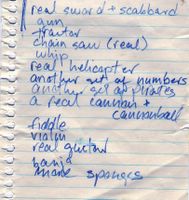 real sword + scabbard
gun
tractor
chain saw (real)
whip
real helicopter
another set of numbers
another set of pirates
a real cannon +
cannonball
fiddle
violin
real guitar
banjo
more sponges